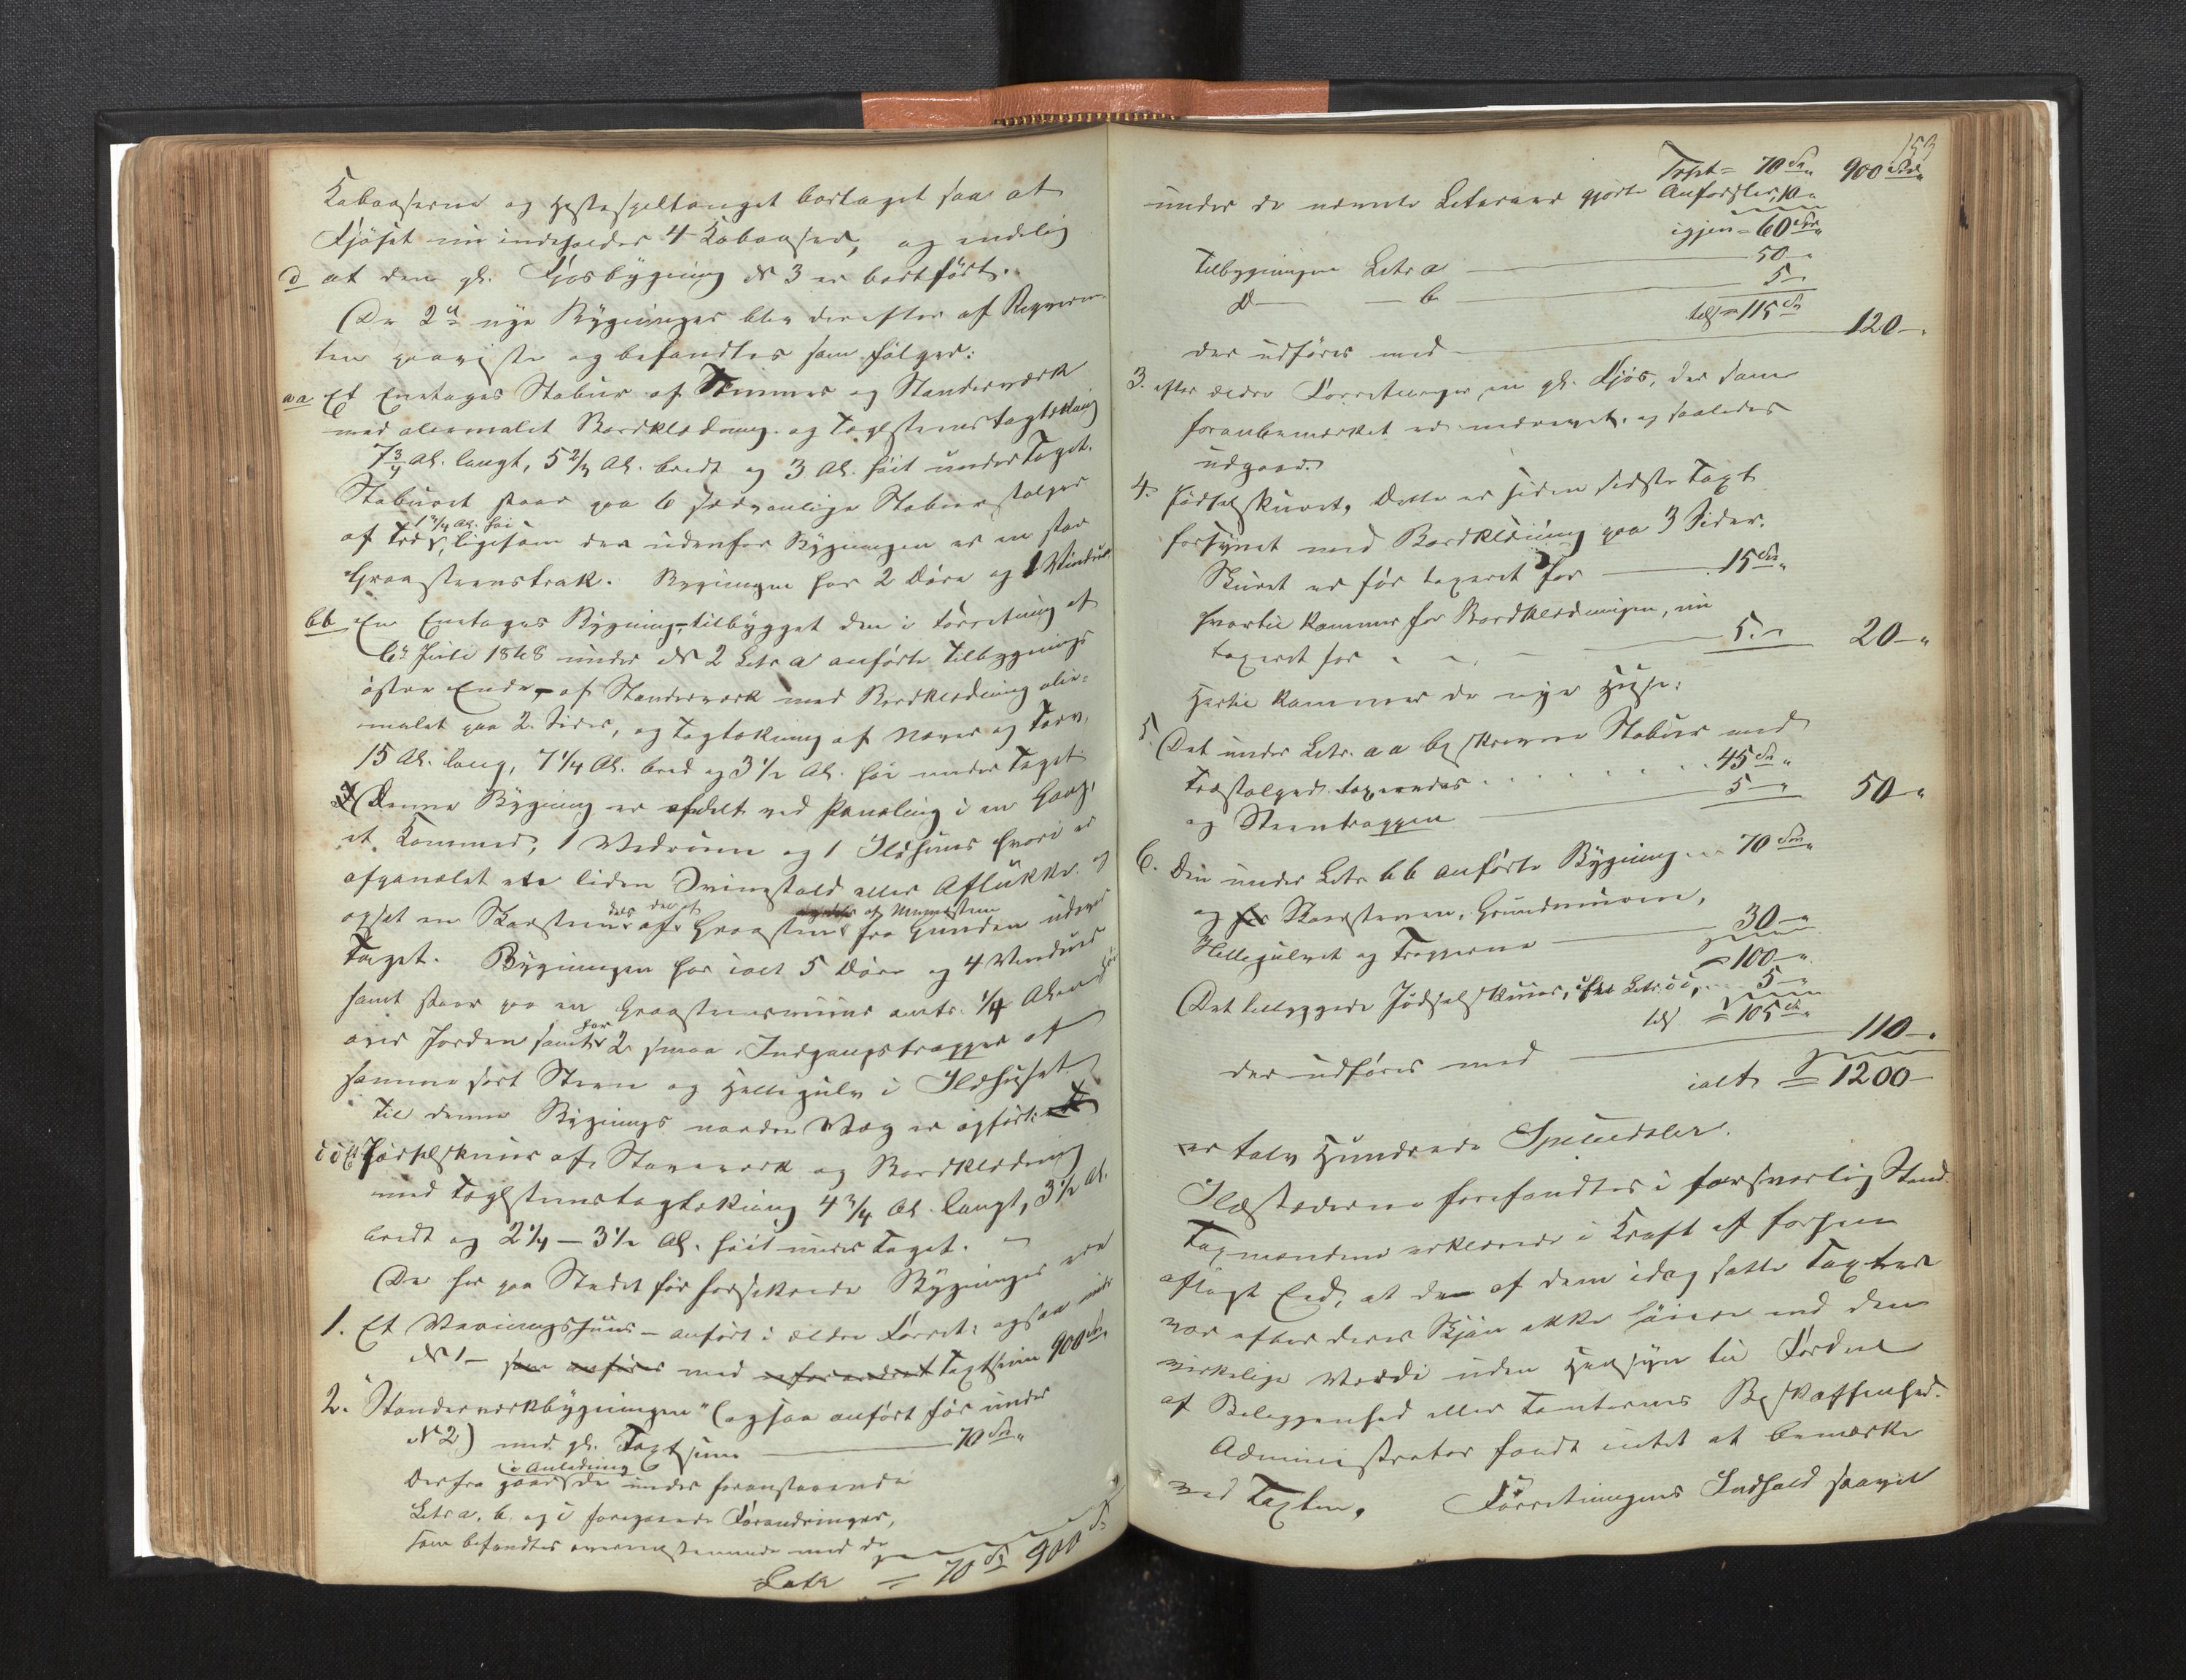 Kobaaserne og Hestespiltouget borttaget saa at
Fjöset nu indeholder 4 Kobaaser, og endelig
d at den gl. Fjosbygning N 3 er bortført.
De 2de nye Bygninger blev derefter af Reqviren-
ten paaviste og befandtes som følger:
aa Et Enetages Stabur af Tømmer og Standerværk
med oliemalet Bordklædning og Taglsteenstagtækning
7 3/4 Al. langt, 5 2/3 Al. bredt og 3 Al. høit under Taget.
Staburet staar paa 6 sædvanlige Staburstolper
1 3/4 Al. høi
af Træ, ligesom der udenfor Bygningen er en stor
Graasteenstrap. Bygningen har 2 Døre og 1 Vindue
bb En Enetages Bygning, tilbygget den i Forretning af
6te Juli 1848 under N 2 Litr a anførte Tilbygnings
østre Ende, af Standerværk med Bordklædning olie-
malet paa 2 Sider, og Tagtækning af Næver og Torv,
15 Al. lang, 7 1/4 Al. bred og 3 1/2 Al. høi under Taget
Denne Bygning er afdelt ved Paneling i en Gang,
et Kammer, 1 Vedrum og 1 Ildhuus hvori er
afpanelet ete liden Svinestald eller Aflukke og
dels af Muursteen
opsat en Skorsteen dels af Graasteen fra Grunden udover
Taget. Bygningen har ialt 5 Døre og 4 Vinduer
samt staar paa en Graasteensmuur omtr. 1/4 Alen høi
har
over Jorden samt 2 smaa Indgangstrapper af
samme sort Steen og Hellegulv i Ildhuset
Til denne Bygnings nordre Væg er opført:
Et Fødselskuur af Stavværk og Bordklædning
med Taglsteenstagtækning 4 3/4 Al. langt, 3 1/2 Al.
bredt og 2 1/4 - 3 1/2 Al. høit under Taget.
De her paa Stedet før forsikrede Bygninger ere
1. Et Vaaningshuus - anført i ældre Forretn. ogsaa under
N 1 - som anføres med uforandret Taxtsum 900 Sp.
2. "Standerværkbygningen" (ogsaa anført før under
N 2) med gl. Taxtsum 70 Sp.
i Anledning
Derfra gaar de under foranstaaende
Litr a, b, og c foregaaede Forandringer,
som befandtes overensstemmende med de
Lat. = 70 Sp 900 Sp
153
Trspt = 70 Sp. 900 Spd.
under de nævnte Literaer gjorte Anførsler, 10 "
igjen = 60 Sp.
Tilbygningen Litr a 50 "
Do - b 5 "
tils = 115 Sp
der udføres med 120 "
3. efter ældre Forretninger, en gl. Fjøs, der som
foranbemærket er nedrevet, og saaledes
udgaaer.
4. Fødselskuret, Dette er siden sidste Taxt
forsynet med Bordklædning paa 3 Sider.
Skuret er før taxeret for 15 Sp. "
hvortil kommer for Bordklædningen, nu
taxeret for 5 " 20 "
Hertil kommer de nye Huse:
5. Det under Litr. aa beskrevne Stabur med
Træstolper taxeredes 45 Sp. "
og Steentrappen 5 " 50 "
6. Den under Litr bb anførte Bygning 70 Sp. "
og for Skorstenen, Grundmuren,
Hellegulvet og Trapperne 30 "
= 100 "
Det tilbyggede Fødselskuur, 5 "
tils = 105 Sp.
der udføres med 110 "
ialt = 1200 -
er tolv Hundrede Speciedaler.
Ildstederne forefandtes i forsvarlig Stand.
Taxmændene erklærede i Kraft af forhen
aflagt Eed, at den af dem idag satte Taxter
var efter deres Skjøn ikke høiere end den
virkelige Værdi uden Hensyn til Fordeel
af Beliggenhed eller Tomternes Beskaffenhed.
Administrator fandt intet at bemærke
ved Taxten. Forretningens Indhold saavel